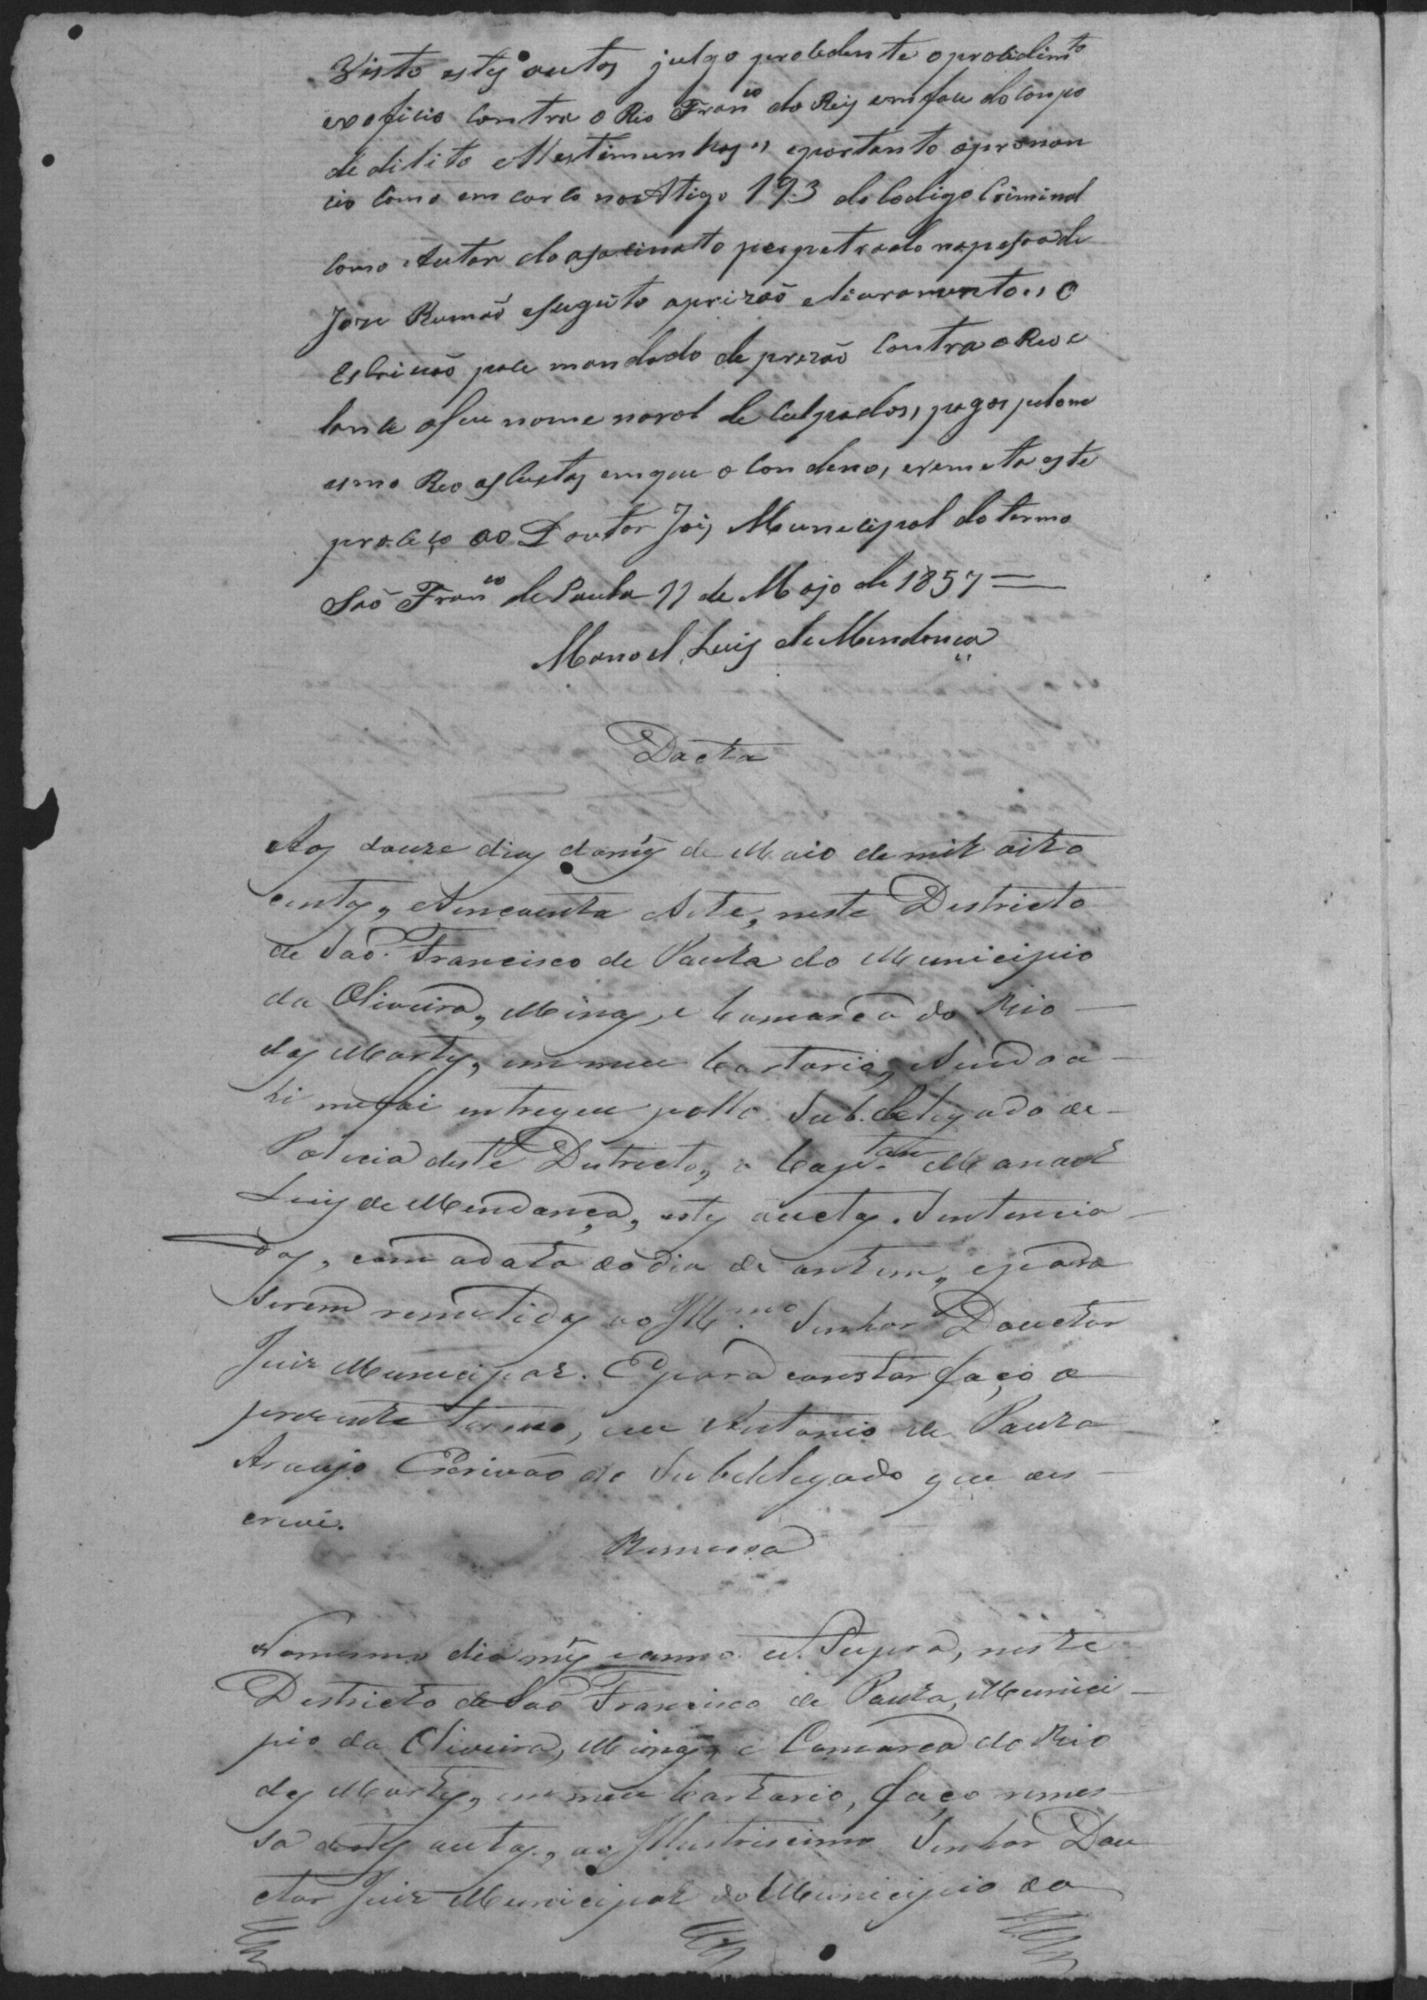 Visto estes autos julgo procedente o procedimto
exoficio contra o Reo Franco do Reis em face do Corpo
de dilito e testimunhas, e portanto o pronon
cio como em curço no Artigo 193 do Codigo Criminal
como Autor do asacinato perpetrado na pesoa de
Joze Rumaõ e sugeito a prizaõ e livramento, o
Escrivaõ pace mandado de prezaõ contra o Reo e
lance o seu nome no rol de Culpados, pagos pelo me
smo Reo as Custas em que o Condeno, e remeta este
proceço ao Doutor Juis Municipal do termo
Saõ Franco de Paula 11 de Majo de 1857
Manoel Luis de Mendonça
Dacta
Aos douze dias do mês de Maio de mil oito
centos, e cincoenta e sete, neste Destricto
de Saõ Francisco de Paula do Municipio
da Oliveira, Minas, e Comarca do Rio
das Mortes, em meu Cartorio, sendo a
hi me foi entregue pello Subdelegado de
Policia deste Destricto, o Cap.tão Manoel
Luis de Mendonça, estes auctos sentencia
dos, com a data do dia de ontem, e para
serem remetidos ao Illmo Senhor Douctor
Juiz Municipal. E para constar faço o
prezente termo, eu Antonio de Paula
Araujo Escrivão do Subdelegado que es
crevi.
Remessa
No mesmo dia mês e anno ut Supra, neste
Destricto de Saõ Francisco de Paula, Munici
pio da Oliveira, Minas, e Comarca do Rio
das Mortes, em meu Cartorio, faço remes
sa destes autos, ao Illustriscimo Senhor Dou
ctor Juiz Municipal do Municipio da